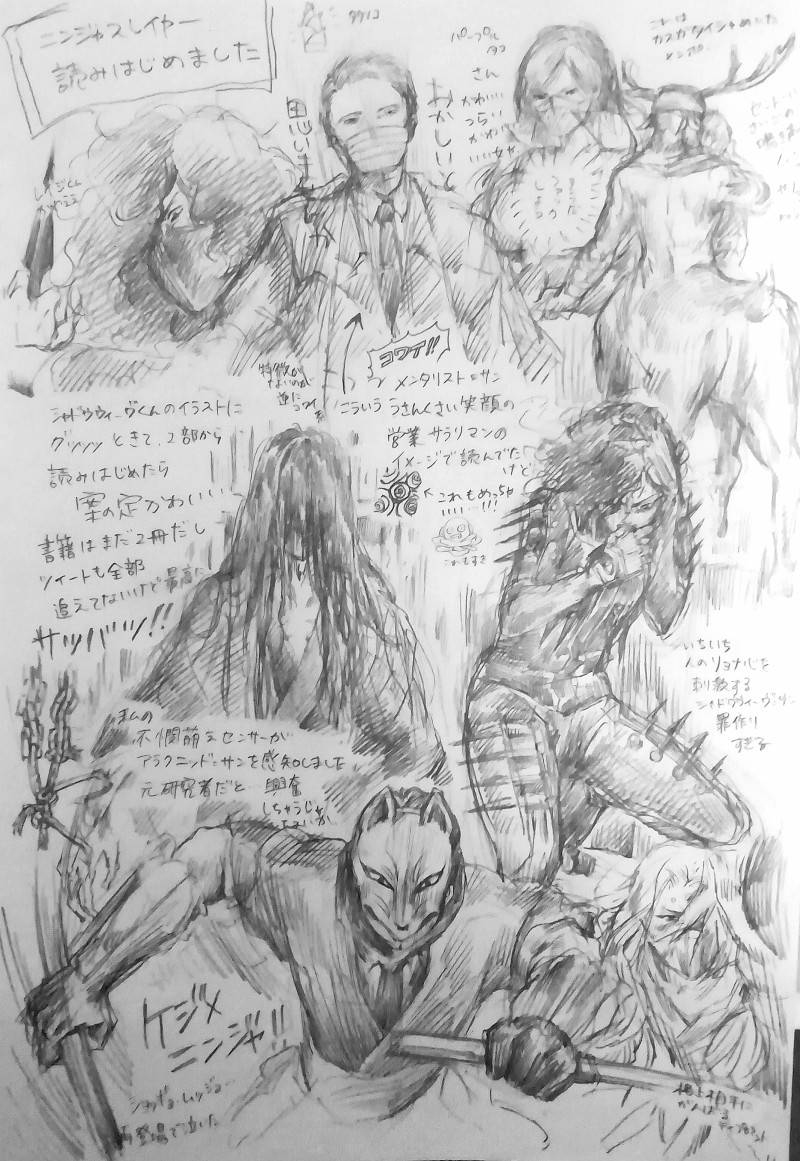 ニンジャスレイヤー
読みはじめました
タケノコ
パープル
タコ
さん
かわいい
つらい
かわ
いい
おかしいと
思いま
これは
特徴が
ないのが
逆に
コワイ
コワイ!!
メンタリスト=サン
こういう うさんくさい笑顔の
営業サラリマンの
イメージで読んでた
けど
これもめっちゃ
いい…!!!
これもすき
シャドウウィーヴくんのイラストに
グッッッときて、2部から
読みはじめたら
案の定かわいい
書籍はまだ2冊だし
ツイートも全部
追えてないけど最高に
サツバツ!!
いちいち
人のリョナ心を
刺激する
シャドウウィーヴ=サン
罪作り
すぎる
私の
不憫萌えセンサーが
アラクニッド=サンを感知しました
元研究者だと…興奮
しちゃうじゃ
ないか
ケジメ
ニンジャ!!
ショッギョ・ムッジョ…
再登場で泣いた
格上相手に
がんばる